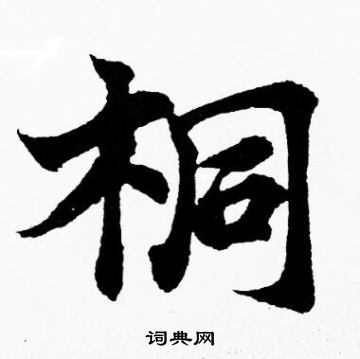 桐
词典网